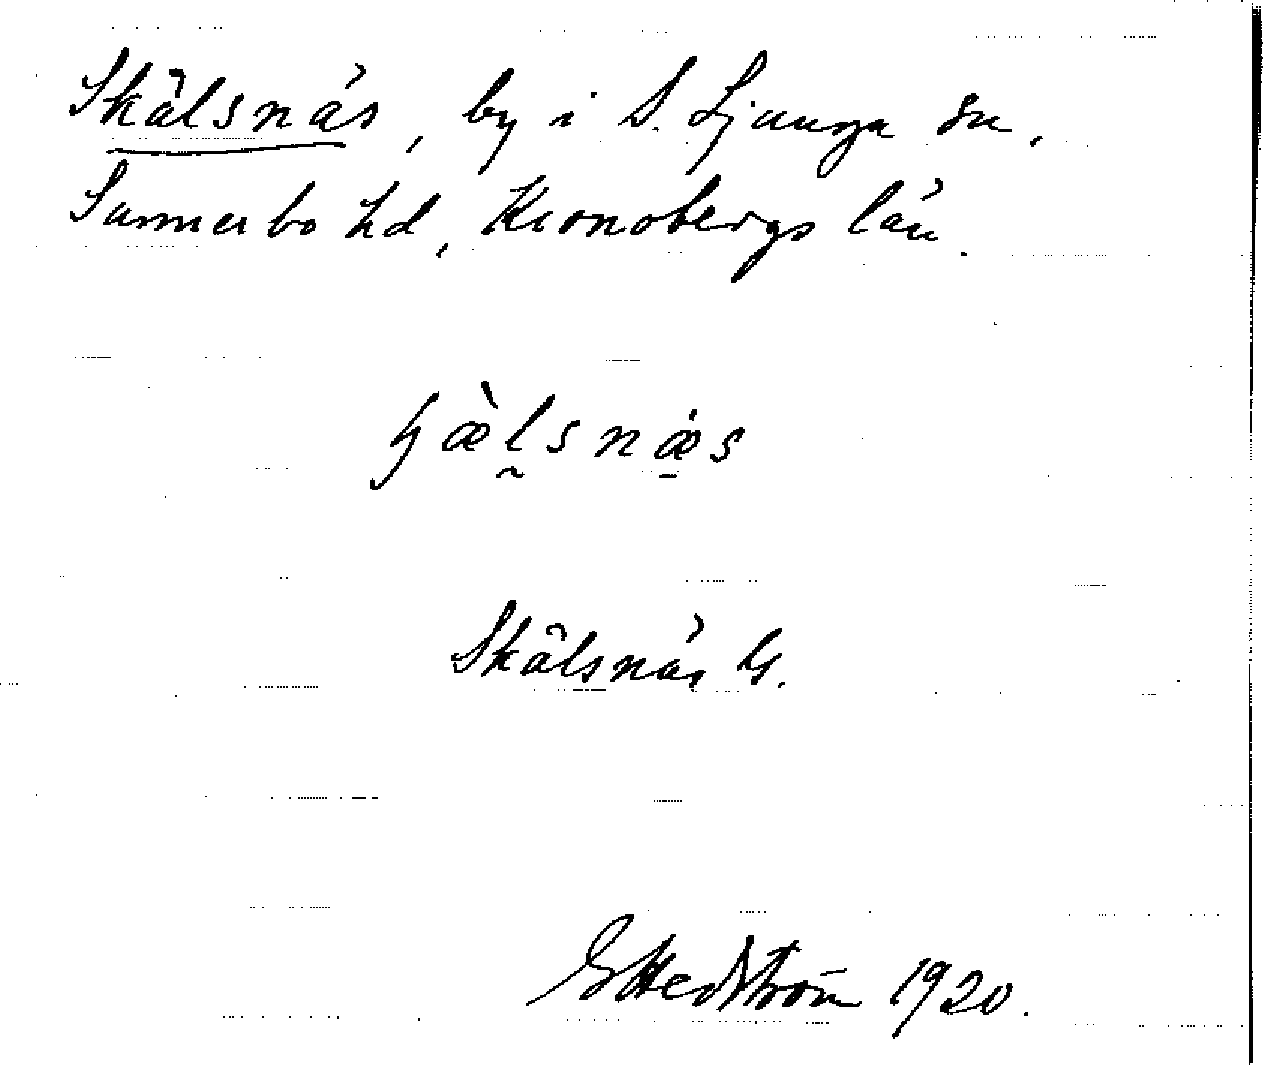 Skälsnäs, by i S. Ljunga sn,
Sunnerbo hd, Kronobergs län.
ɧæ̀l̰snæ̱̇s
Skälsnäs G.
G Hedström 1920.